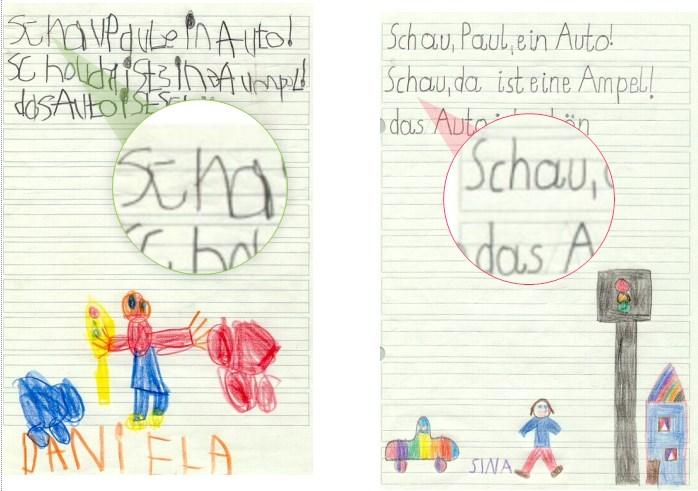 Schau, Paul, ein Auto!
Schau, da ist eine Ampel!
das Auto
Scha
DANIELA
Schau, Paul, ein Auto!
Schau, da ist eine Ampel!
das Auto
Schau,
das A
SINA